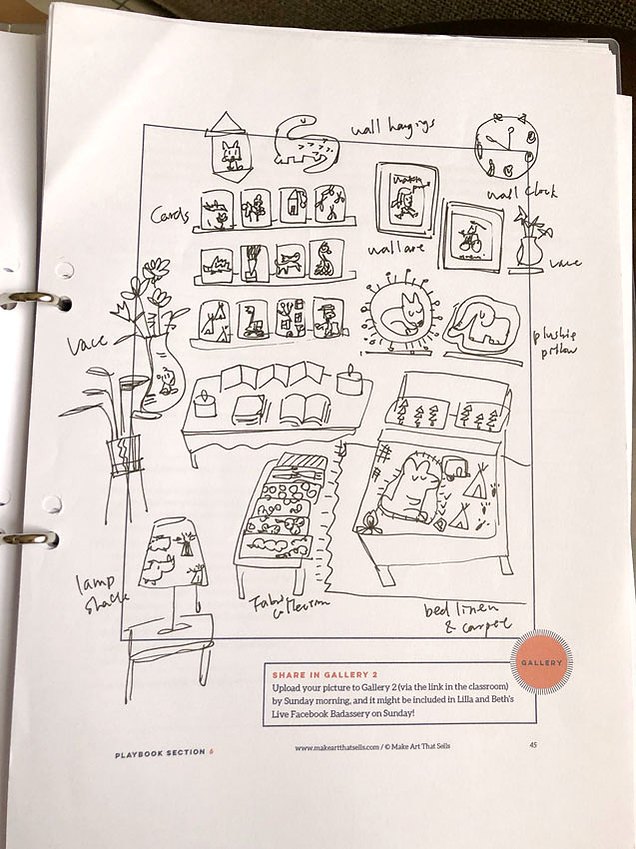 wall hangings
Cards
wall clock
wall are
vace
vace
plushie
pillow
lamp
shade
Fabric
Collection
bed linen
& carpet
GALLERY
SHARE IN GALLERY 2
Upload your picture to Gallery 2 (via the link in the classroom)
by Sunday morning, and it might be included in Lilla and Beth's
Live Facebook Badassery on Sunday!
PLAYBOOK SECTION 6
www.makeartthatsells.com / © Make Art That Sells
45